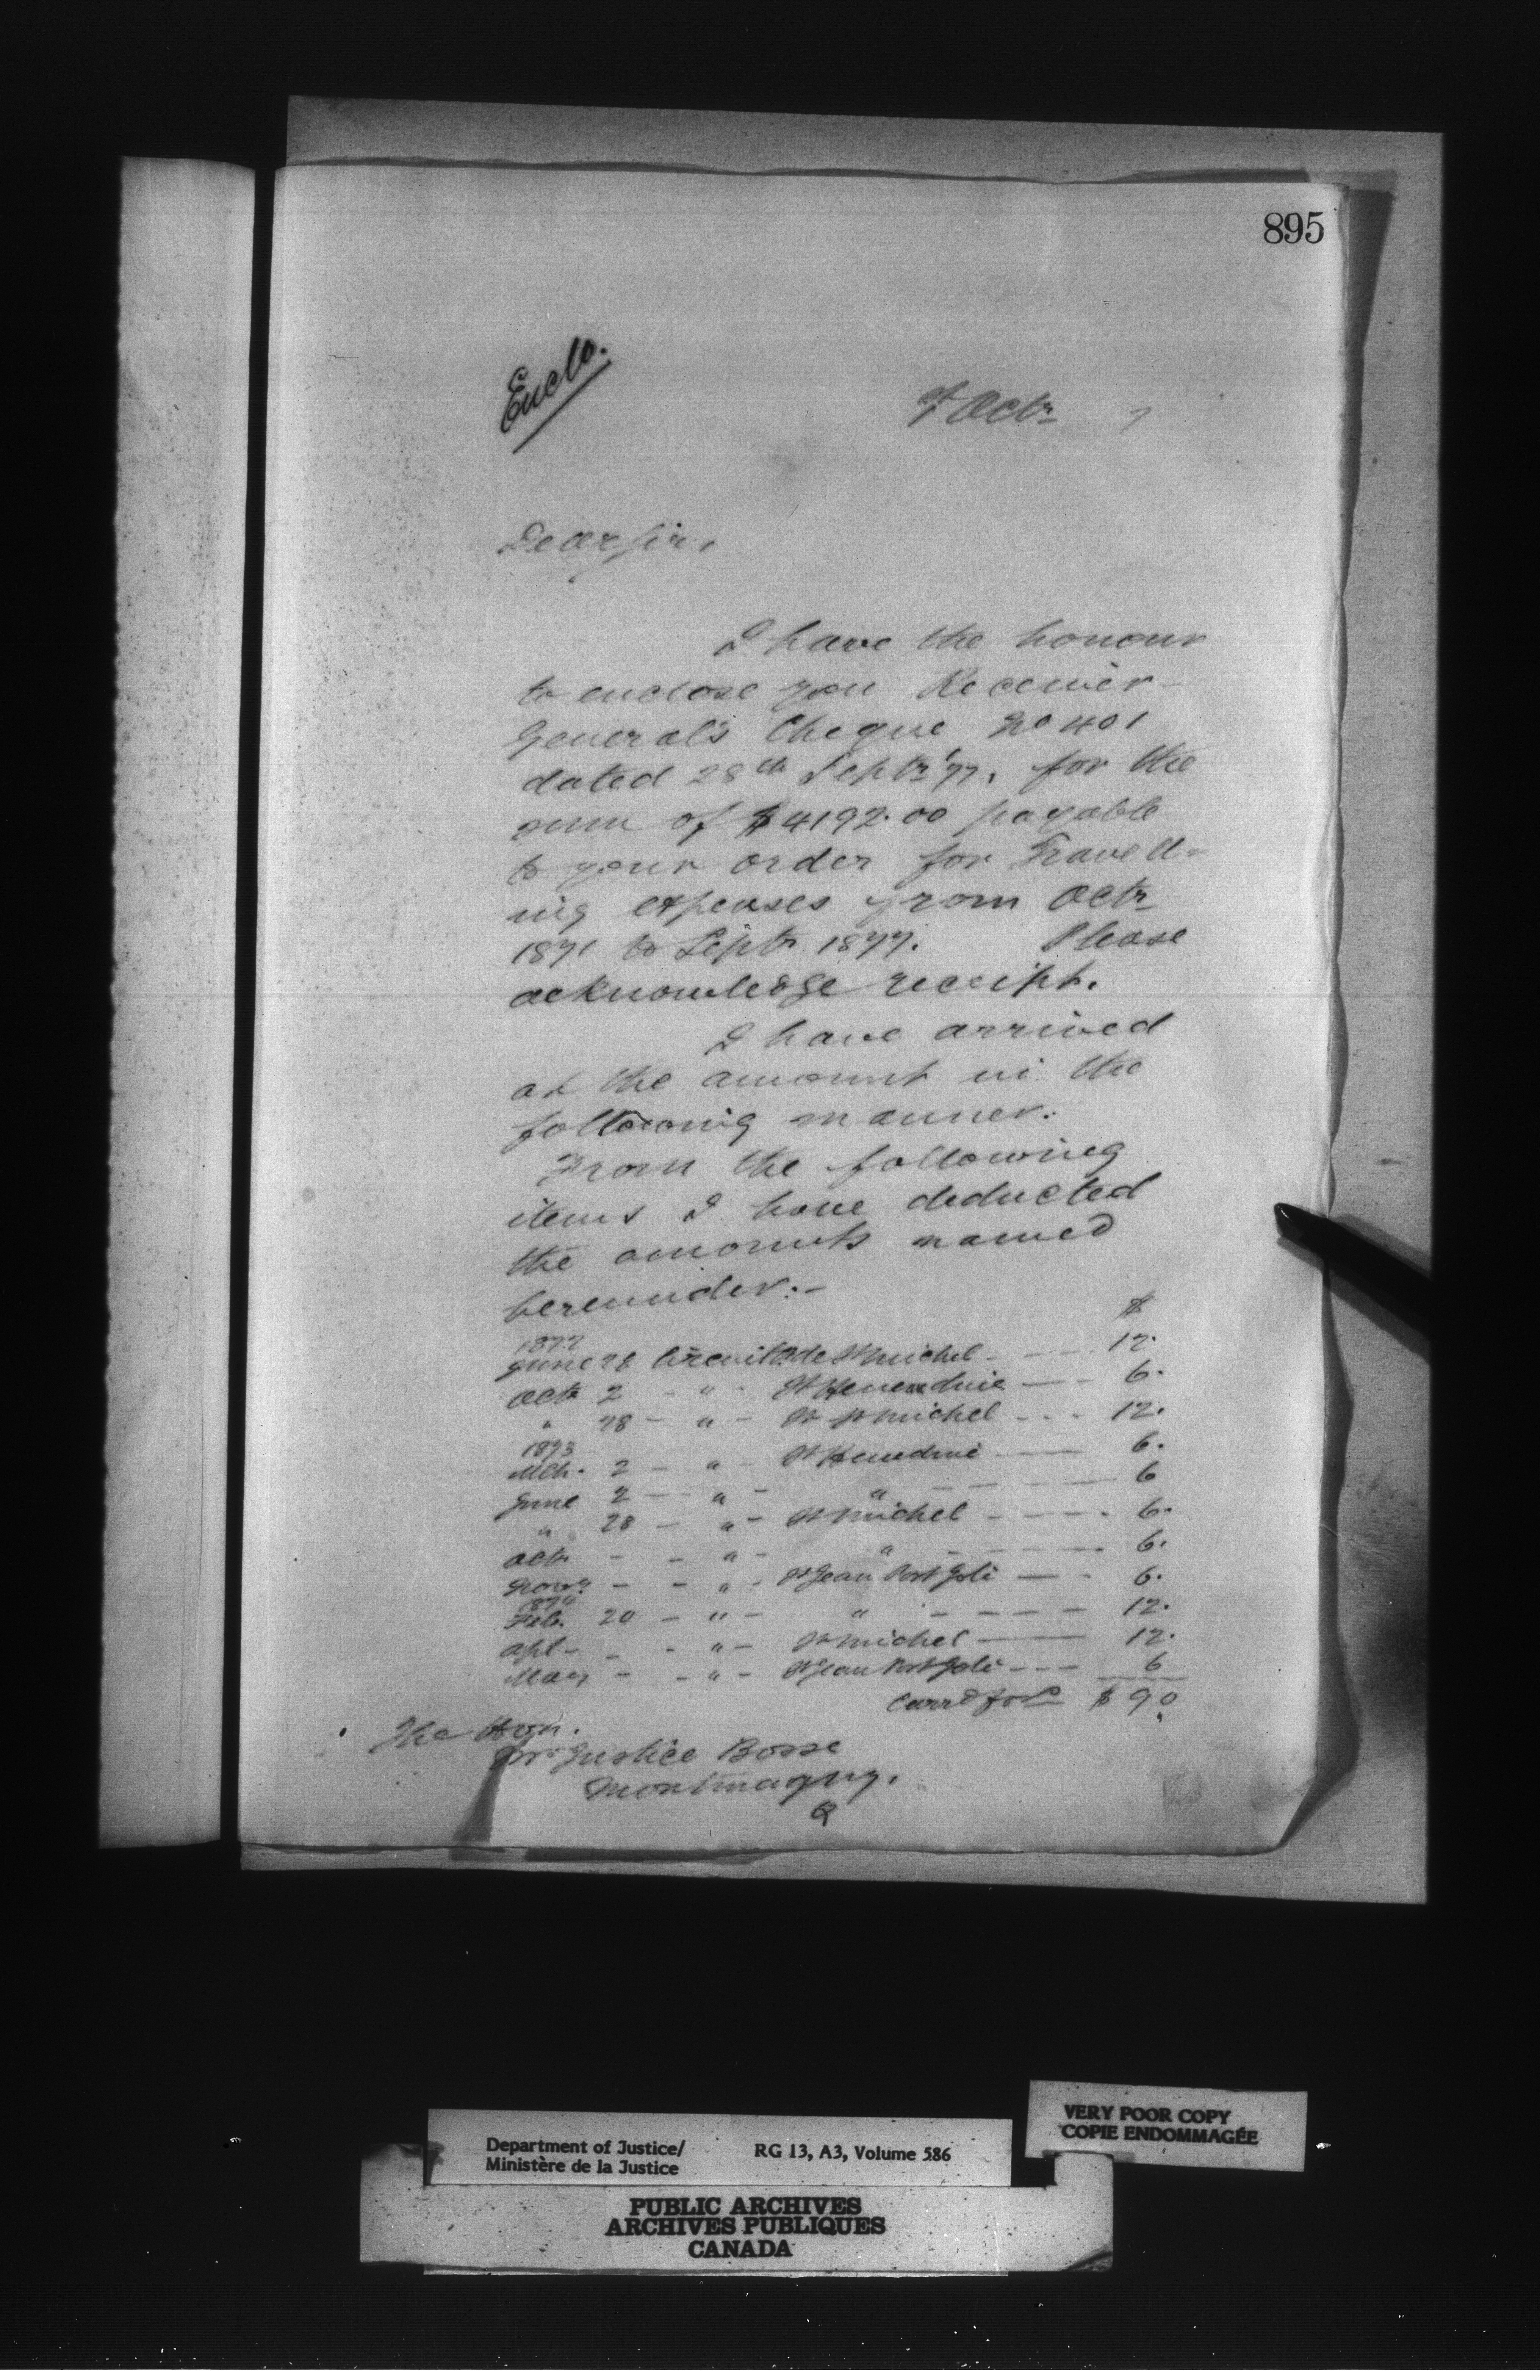 895
Enclo.
Octr 7
Dear Sir,
I have the honour
to enclose you Receiver
General's Cheque No 401
dated 28th Septr '77, for the
sum of $4192.00 payable
to your order for Travell-
ing expenses from Octr
1871 to Septr 1877. Please
acknowledge receipt.
I have arrived
at the amount in the
following manner:
From the following
items I have deducted
the amounts named
hereunder:-
$
1872
June 28 Circuit Ct de St Michel - - - 12.
Octr 2 - " - St Henedine - - 6.
" 28 - " - St Michel - - - 12.
1873
Mch. 2 - " - St Henedine - 6.
June 2 - " - " - - - 6
" 28 - " - St Michel - - - - 6.
Octr - - " - " - - - - 6.
Novr - - " - St Jean Port Joli - - 6.
1874
Feb. 20 - " - " - - - - 12.
Apl - - - " - St Michel - 12.
May - - " - St Jean Port Joli - - - 6
Carrd ford $ 90
The Hon.
Mr Justice Bosse
Montmagny.
Q
VERY POOR COPY
COPIE ENDOMMAGÉE
Department of Justice/ RG 13, A3, Volume 586
Ministère de la Justice
PUBLIC ARCHIVES
ARCHIVES PUBLIQUES
CANADA